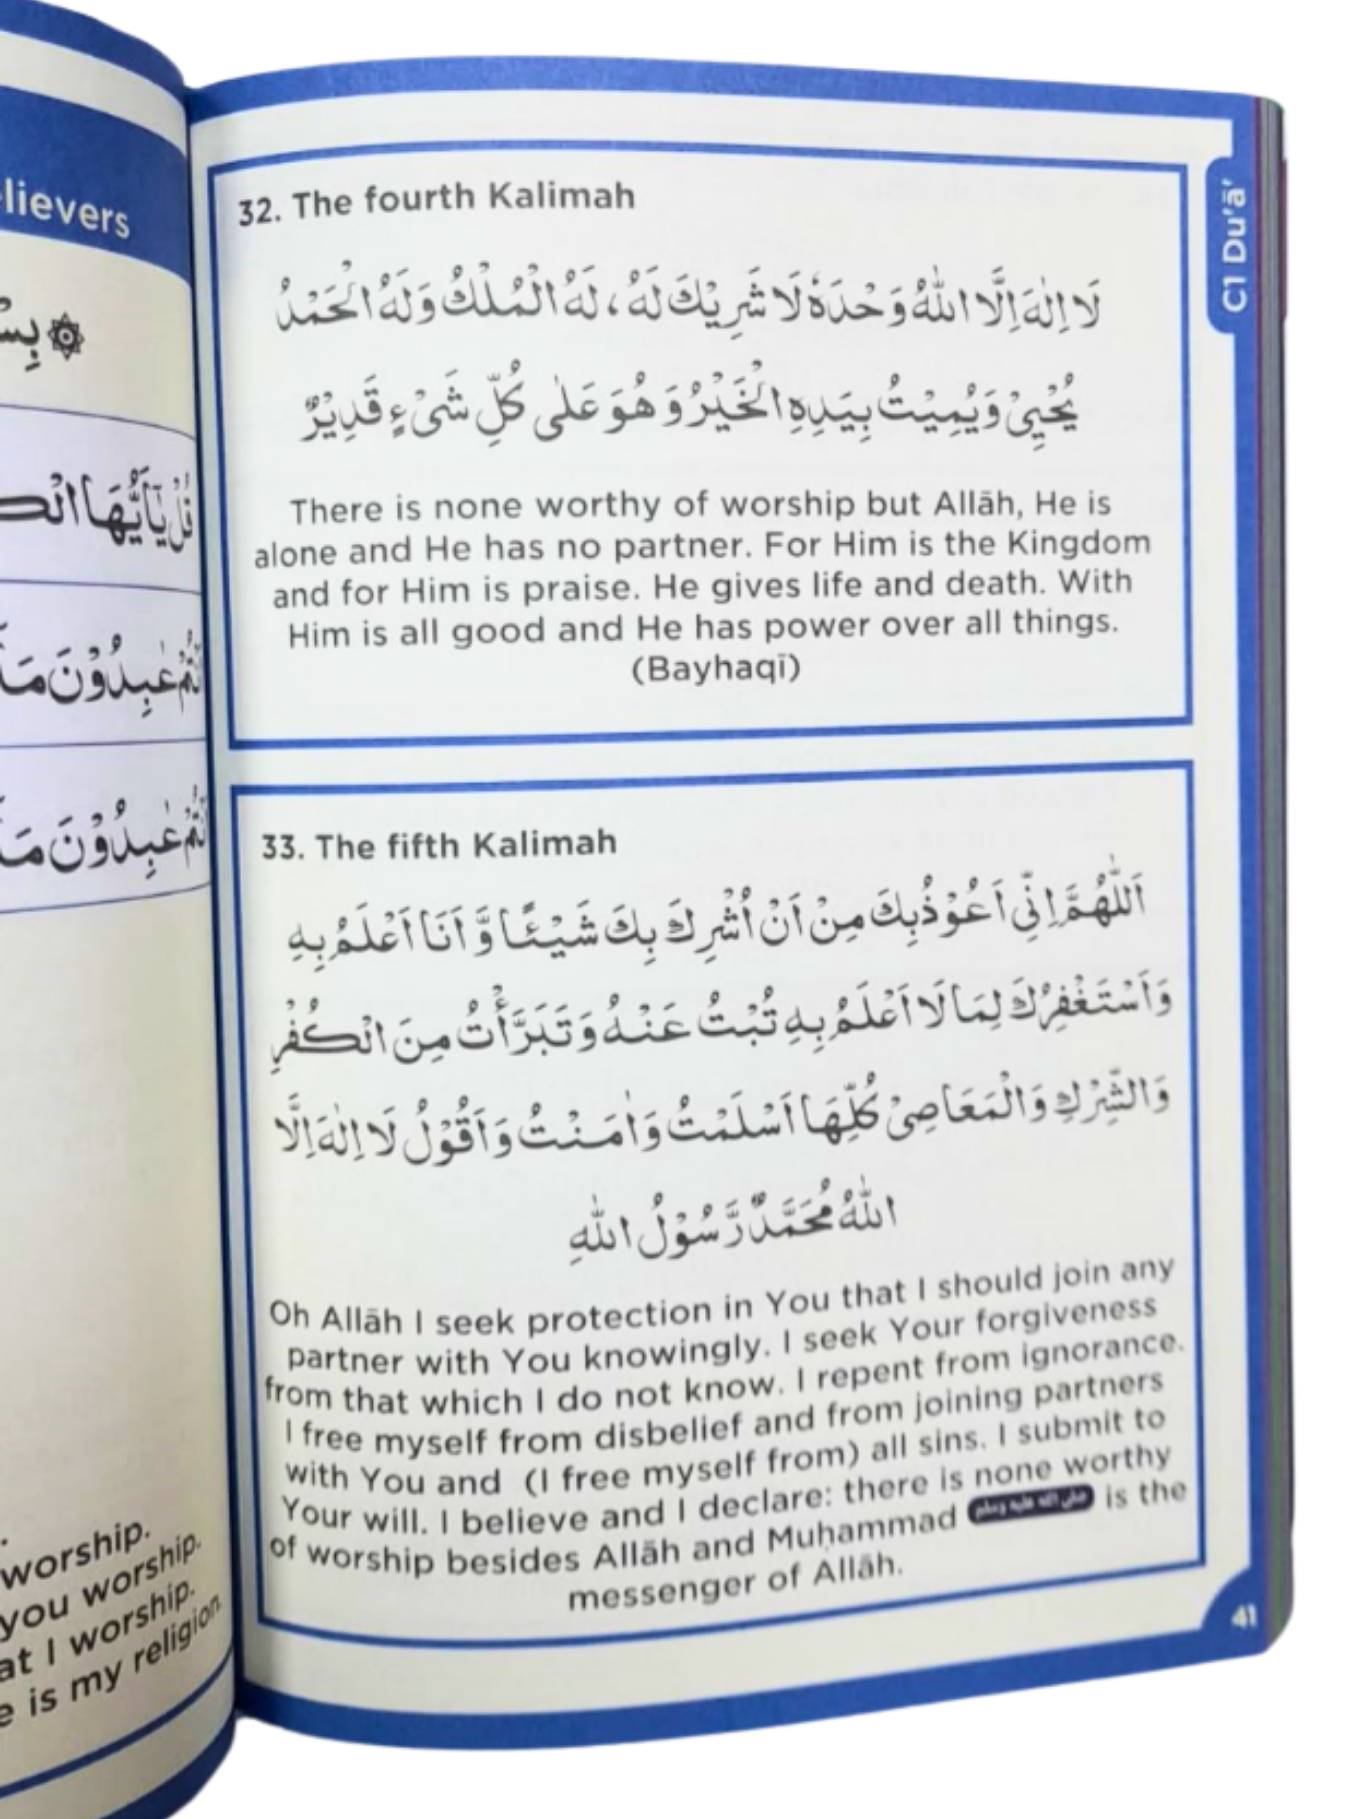 lievers
قُلْ يٰٓاَيُّهَا الْك
عٰبِدُوْنَ مَا
عٰبِدُوْنَ مَا
worship.
you worship.
at I worship.
is my religion.
32. The fourth Kalimah
لَا اِلٰهَ اِلَّا اللّٰهُ وَحْدَهٗ لَا شَرِيْكَ لَهُ، لَهُ الْمُلْكُ وَلَهُ الْحَمْدُ
يُحْيِيْ وَيُمِيْتُ بِيَدِهِ الْخَيْرُ وَهُوَ عَلٰى كُلِّ شَىْءٍ قَدِيْرٌ
There is none worthy of worship but Allāh, He is
alone and He has no partner. For Him is the Kingdom
and for Him is praise. He gives life and death. With
Him is all good and He has power over all things.
(Bayhaqī)
33. The fifth Kalimah
اَللّٰهُمَّ اِنِّي اَعُوْذُبِكَ مِنْ اَنْ اُشْرِكَ بِكَ شَيْئًا وَّ اَنَا اَعْلَمُ بِهِ
وَاَسْتَغْفِرُكَ لِمَا لَا اَعْلَمُ بِهِ تُبْتُ عَنْهُ وَتَبَرَّأْتُ مِنَ الْكُفْرِ
وَالشِّرْكِ وَالْمَعَاصِيْ كُلِّهَا اَسْلَمْتُ وَاٰمَنْتُ وَاَقُوْلُ لَا اِلٰهَ اِلَّا
اللّٰهُ مُحَمَّدٌ رَّسُوْلُ اللّٰهِ
Oh Allāh I seek protection in You that I should join any
partner with You knowingly. I seek Your forgiveness
from that which I do not know. I repent from ignorance.
I free myself from disbelief and from joining partners
with You and (I free myself from) all sins. I submit to
Your will. I believe and I declare: there is none worthy
of worship besides Allāh and Muḥammad صلى الله عليه وسلم is the
messenger of Allāh.
C1 Du'ā'
41